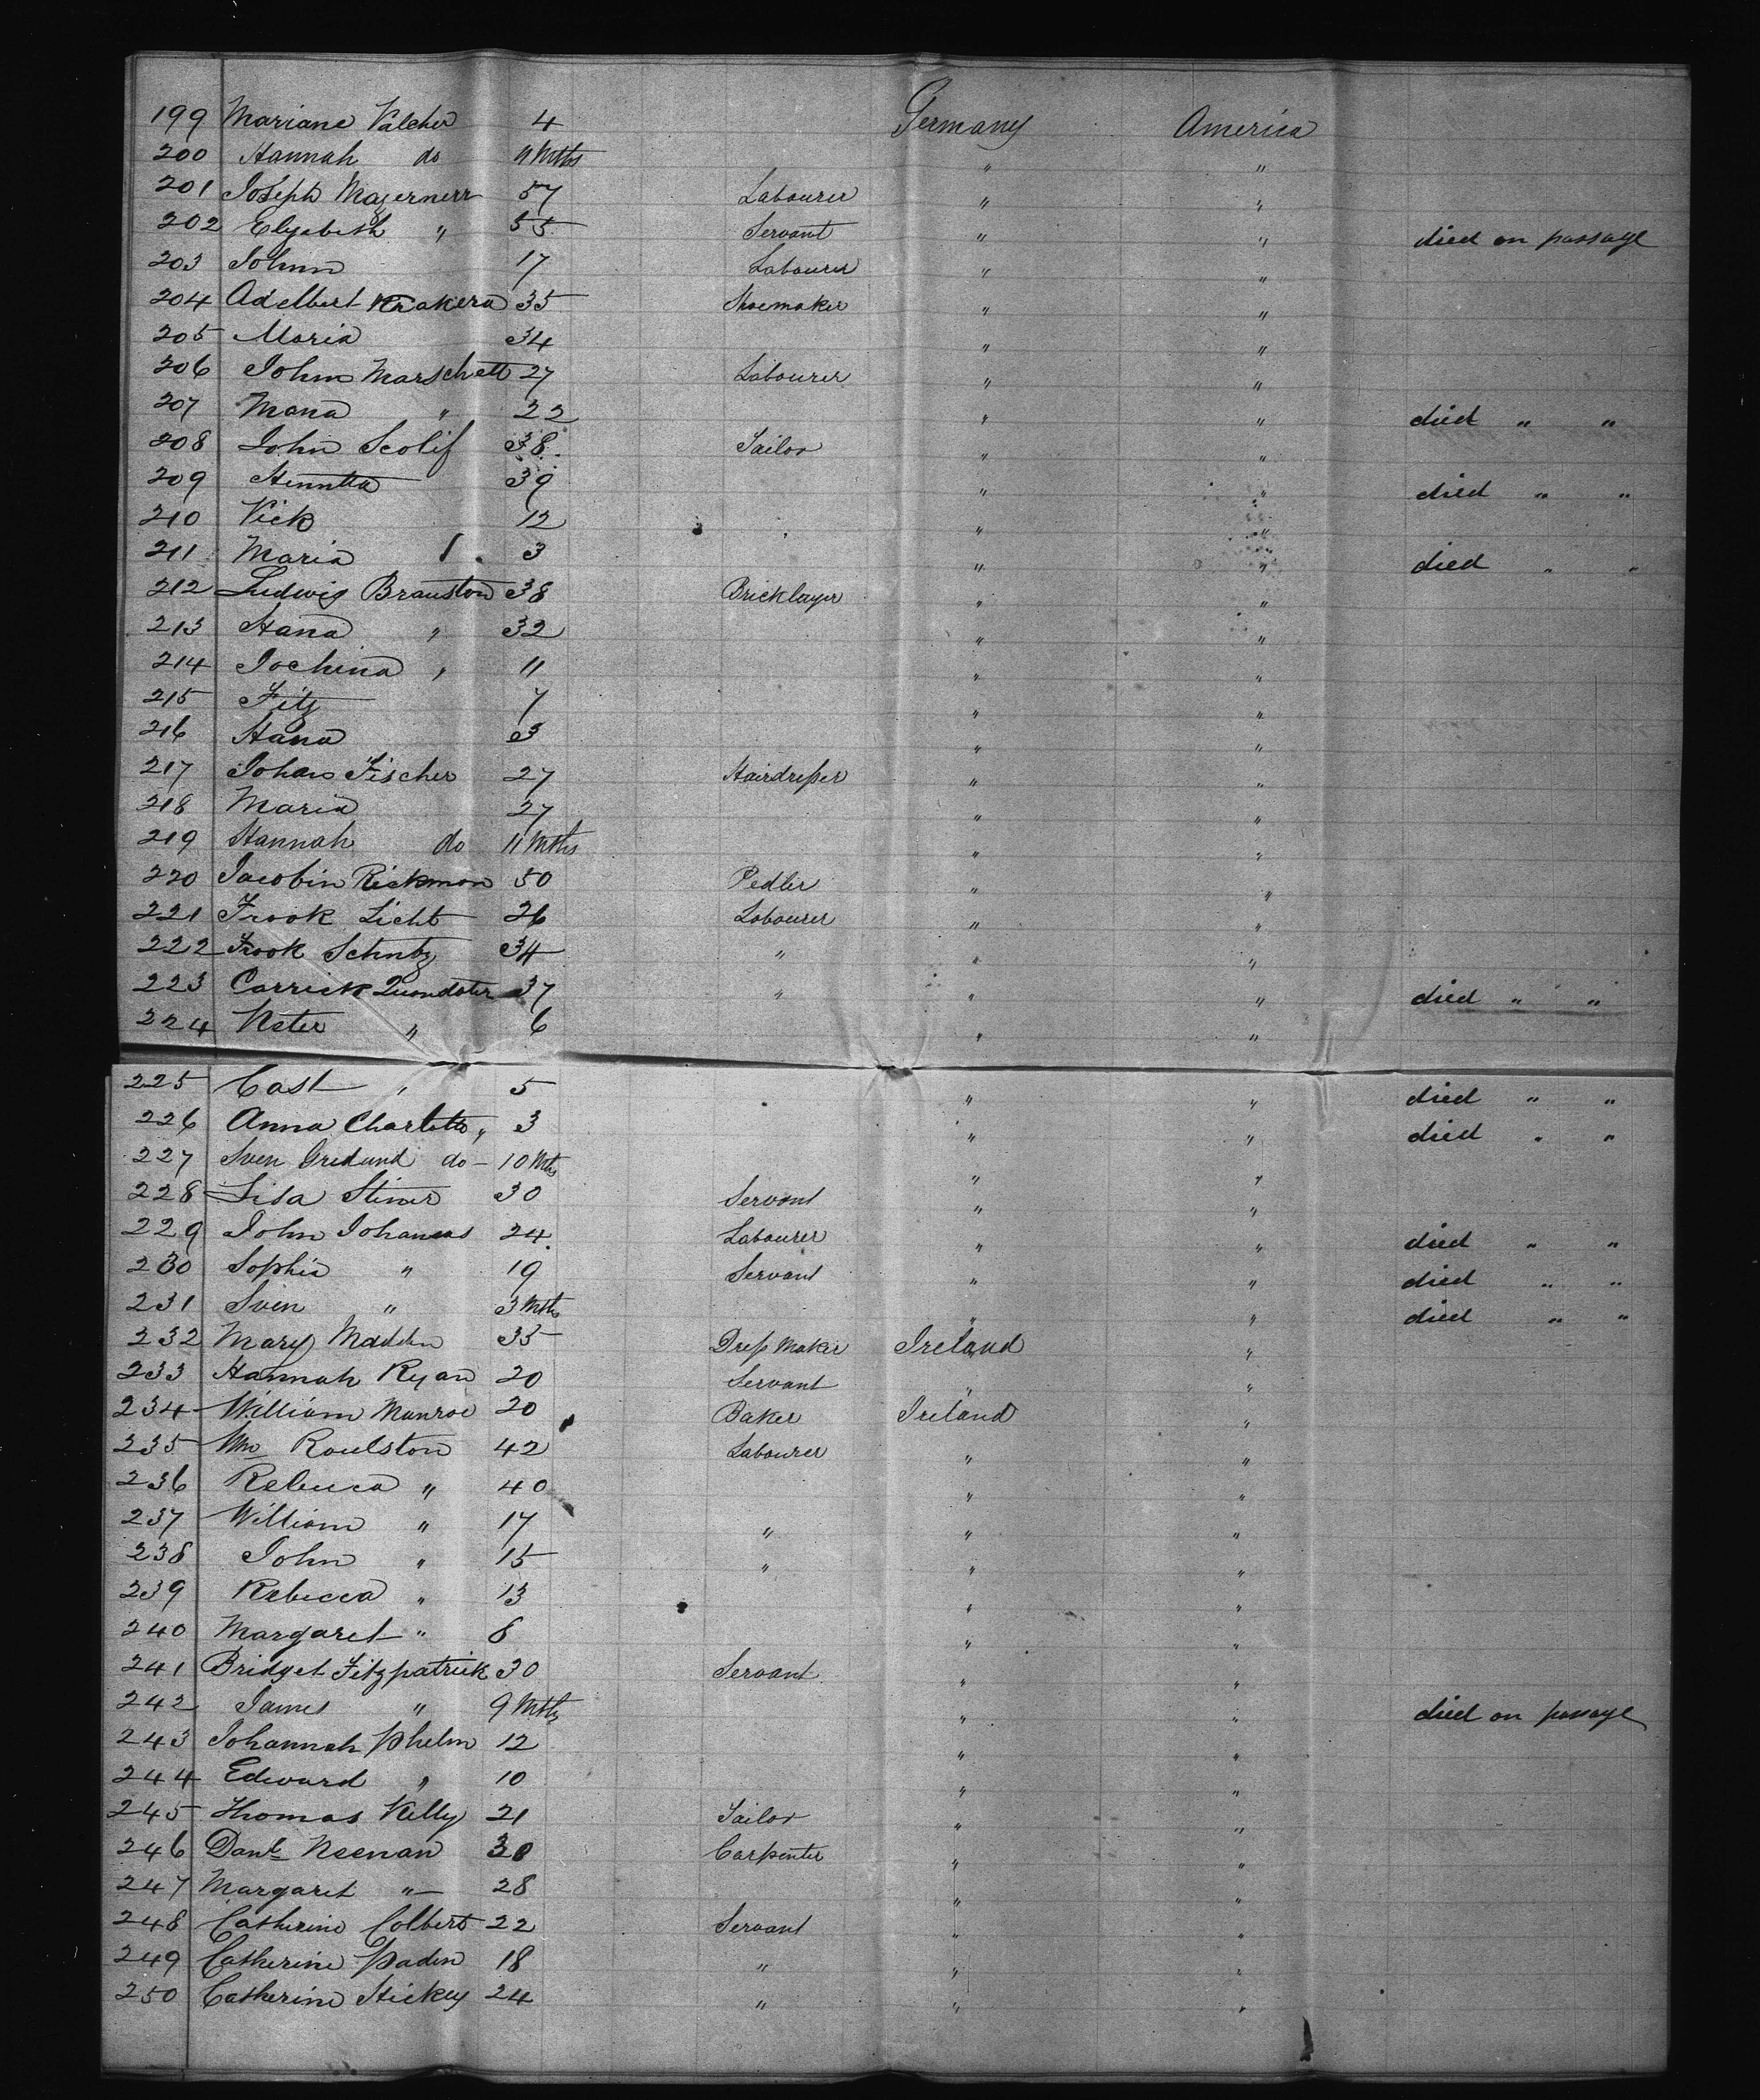 199 Mariane Valcher 4 Germany America
200 Hannah do 11 Mths " "
201 Joseph Mazernerr 57 Labourer " "
202 Elyabeth " 55 Servant " " died on passage
203 Johnn 17 Labourer " "
204 Adelbert Krakera 35 Shoemaker " "
205 Maria 34 " "
206 John Marschett 27 Labourer " "
207 Mana " 22 " " died " "
208 John Scolif 38 Tailor " "
209 39 " " died " "
210 Vick 12 " "
211 Maria 3 " " died " "
212 Ludwig Brauston 38 Bricklayer " "
213 Hana " 32 " "
214 Jochina " 11 " "
215 Fitz 7 " "
216 Hana 3 " "
217 Johan Fischer 27 Hairdresser " "
218 Maria 27 " "
219 Hannah do 11 Mths " "
220 Jacobin Rickmon 50 Pedler " "
221 Frook Licht 26 Labourer " "
222 Frook 34 " " "
223 Carrick 37 " " " died " "
224 " 6 " "
225 Cast " 5 " " died " "
226 Anna Charlotte " 3 " " died " "
227 Sven do 10 Mths " "
228 Lisa Stiner 30 Servant " "
229 John 24 Labourer " " died " "
230 Sophia " 19 Servant " " died " "
231 Sven " 3 Mths " " died " "
232 Mary Madden 35 Dress Maker Ireland "
233 Hannah Ryan 20 Servant " "
234 William Monroe 20 Baker Ireland "
235 Wm Roulston 42 Labourer " "
236 Rebecca " 40 " "
237 William " 17 " " "
238 John " 15 " " "
239 Rebecca " 13 " "
240 Margaret " 8 " "
241 Bridget Fitzpatrick 30 Servant " "
242 James " 9 Mths " " died on passage
243 Johannah Phelm 12 " "
244 Edward " 10 " "
245 Thomas Kelly 21 Tailor " "
246 Danl Neenan 30 Carpenter " "
247 Margaret " 28 " "
248 Catherine Colbert 22 Servant " "
249 Catherine Paden 18 " " "
250 Catherine Hickey 24 " " "